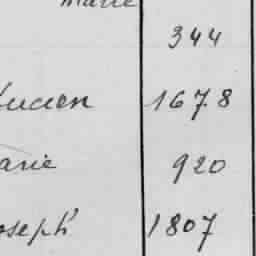 Marie
344
Lucien 1678
arie 920
oseph 1807